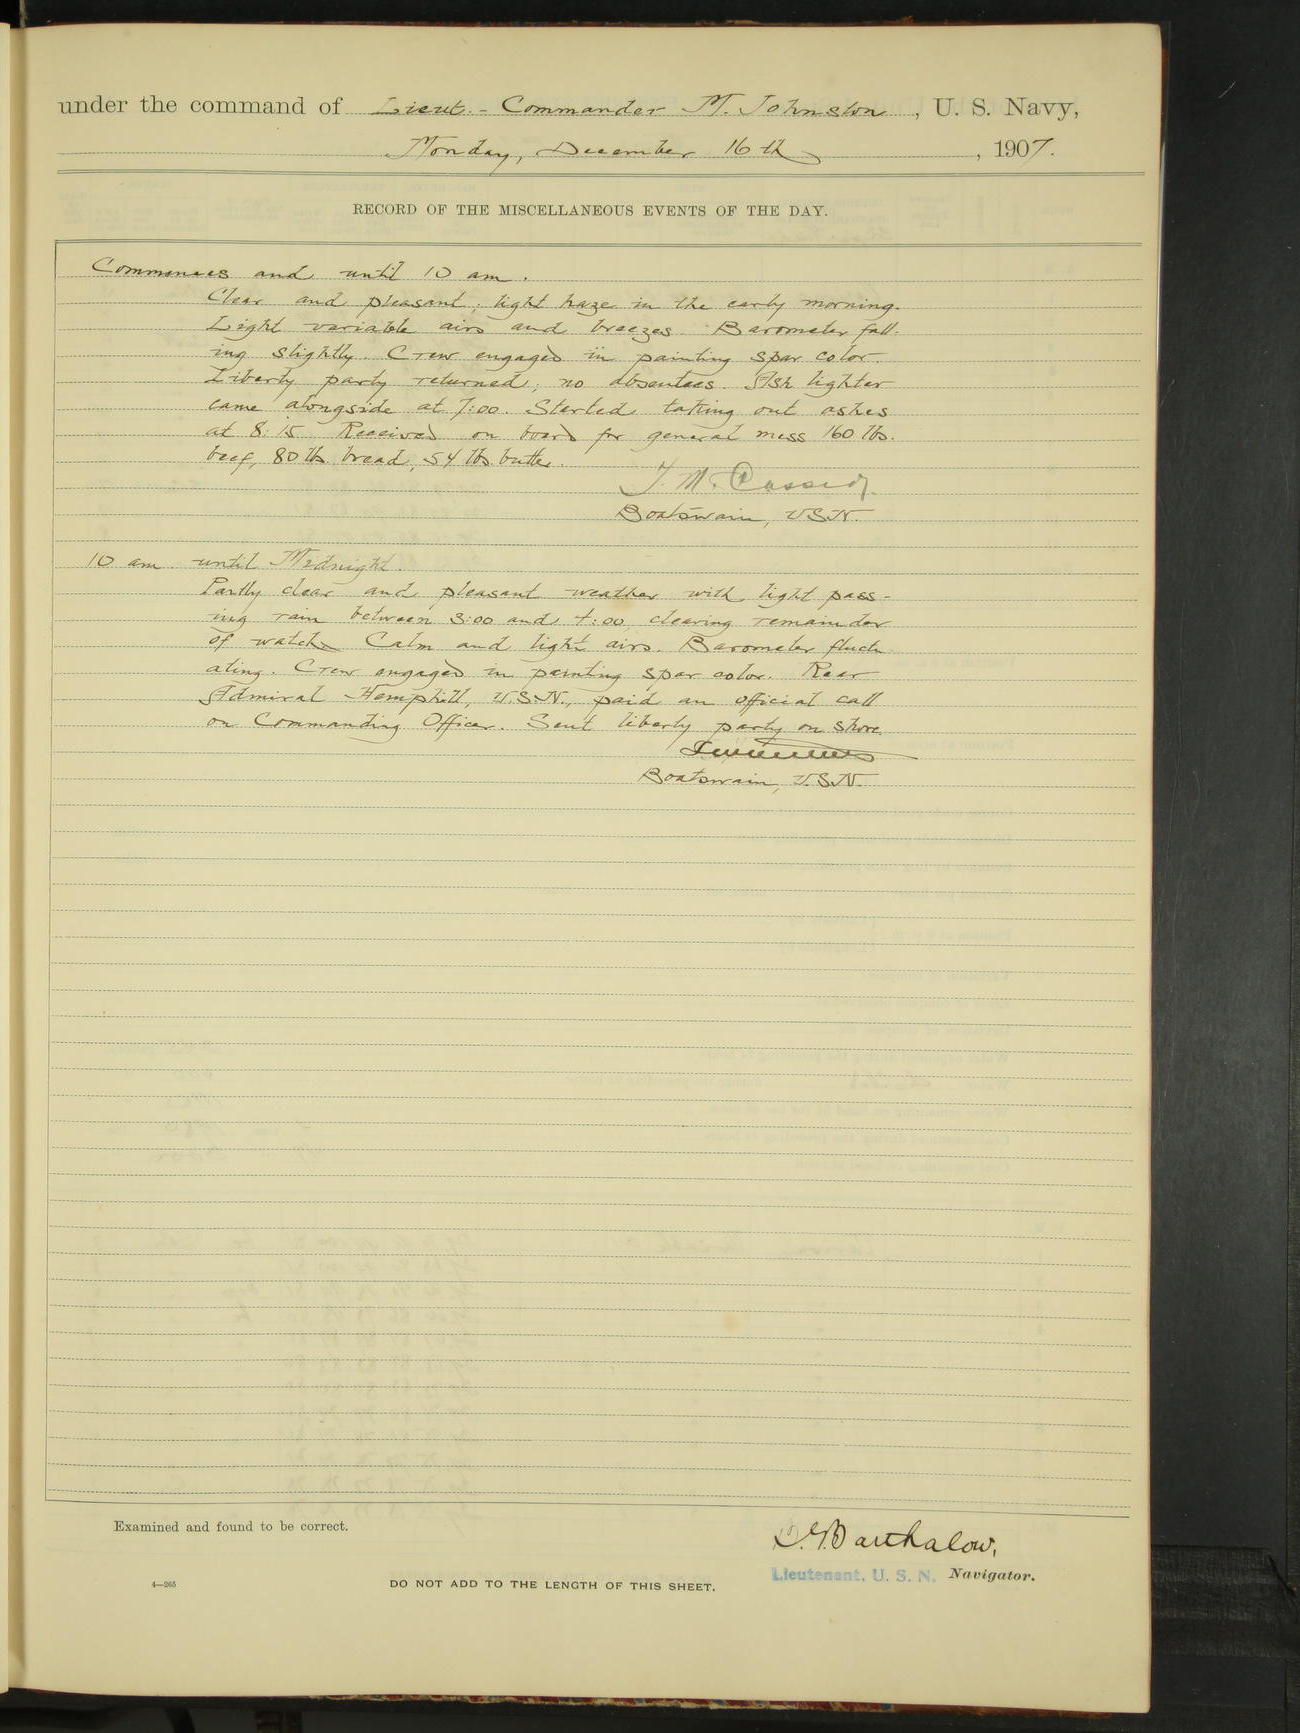 under the command of Lieut.- Commander M. Johnston, U. S. Navy,
Monday, December 16th, 1907.
RECORD OF THE MISCELLANEOUS EVENTS OF THE DAY.
Commences and until 10 am.
Clear and pleasant; light haze in the early morning.
Light variable airs and breezes. Barometer fall-
ing slightly. Crew engaged in painting spar color.
Liberty party returned; no absentees. Ash lighter
came alongside at 7:00. Started taking out ashes
at 8:15. Received on board for general mess 160 lbs.
beef, 80 lbs. bread, 54 lbs. butter.
T. M. Cassidy.
Boatswain, U.S.N.
10 am until Midnight.
Partly clear and pleasant weather with light pass-
ing rain between 3:00 and 4:00 clearing remainder
of watch. Calm and light airs. Barometer fluctu
ating. Crew engaged in painting spar color. Rear
Admiral Hemphill, U.S.N., paid an official call
on Commanding Officer. Sent liberty party on shore.
Boatswain, U.S.N.
Examined and found to be correct.
Barthalow,
Lieutenant, U. S. N. Navigator.
4—265
DO NOT ADD TO THE LENGTH OF THIS SHEET.